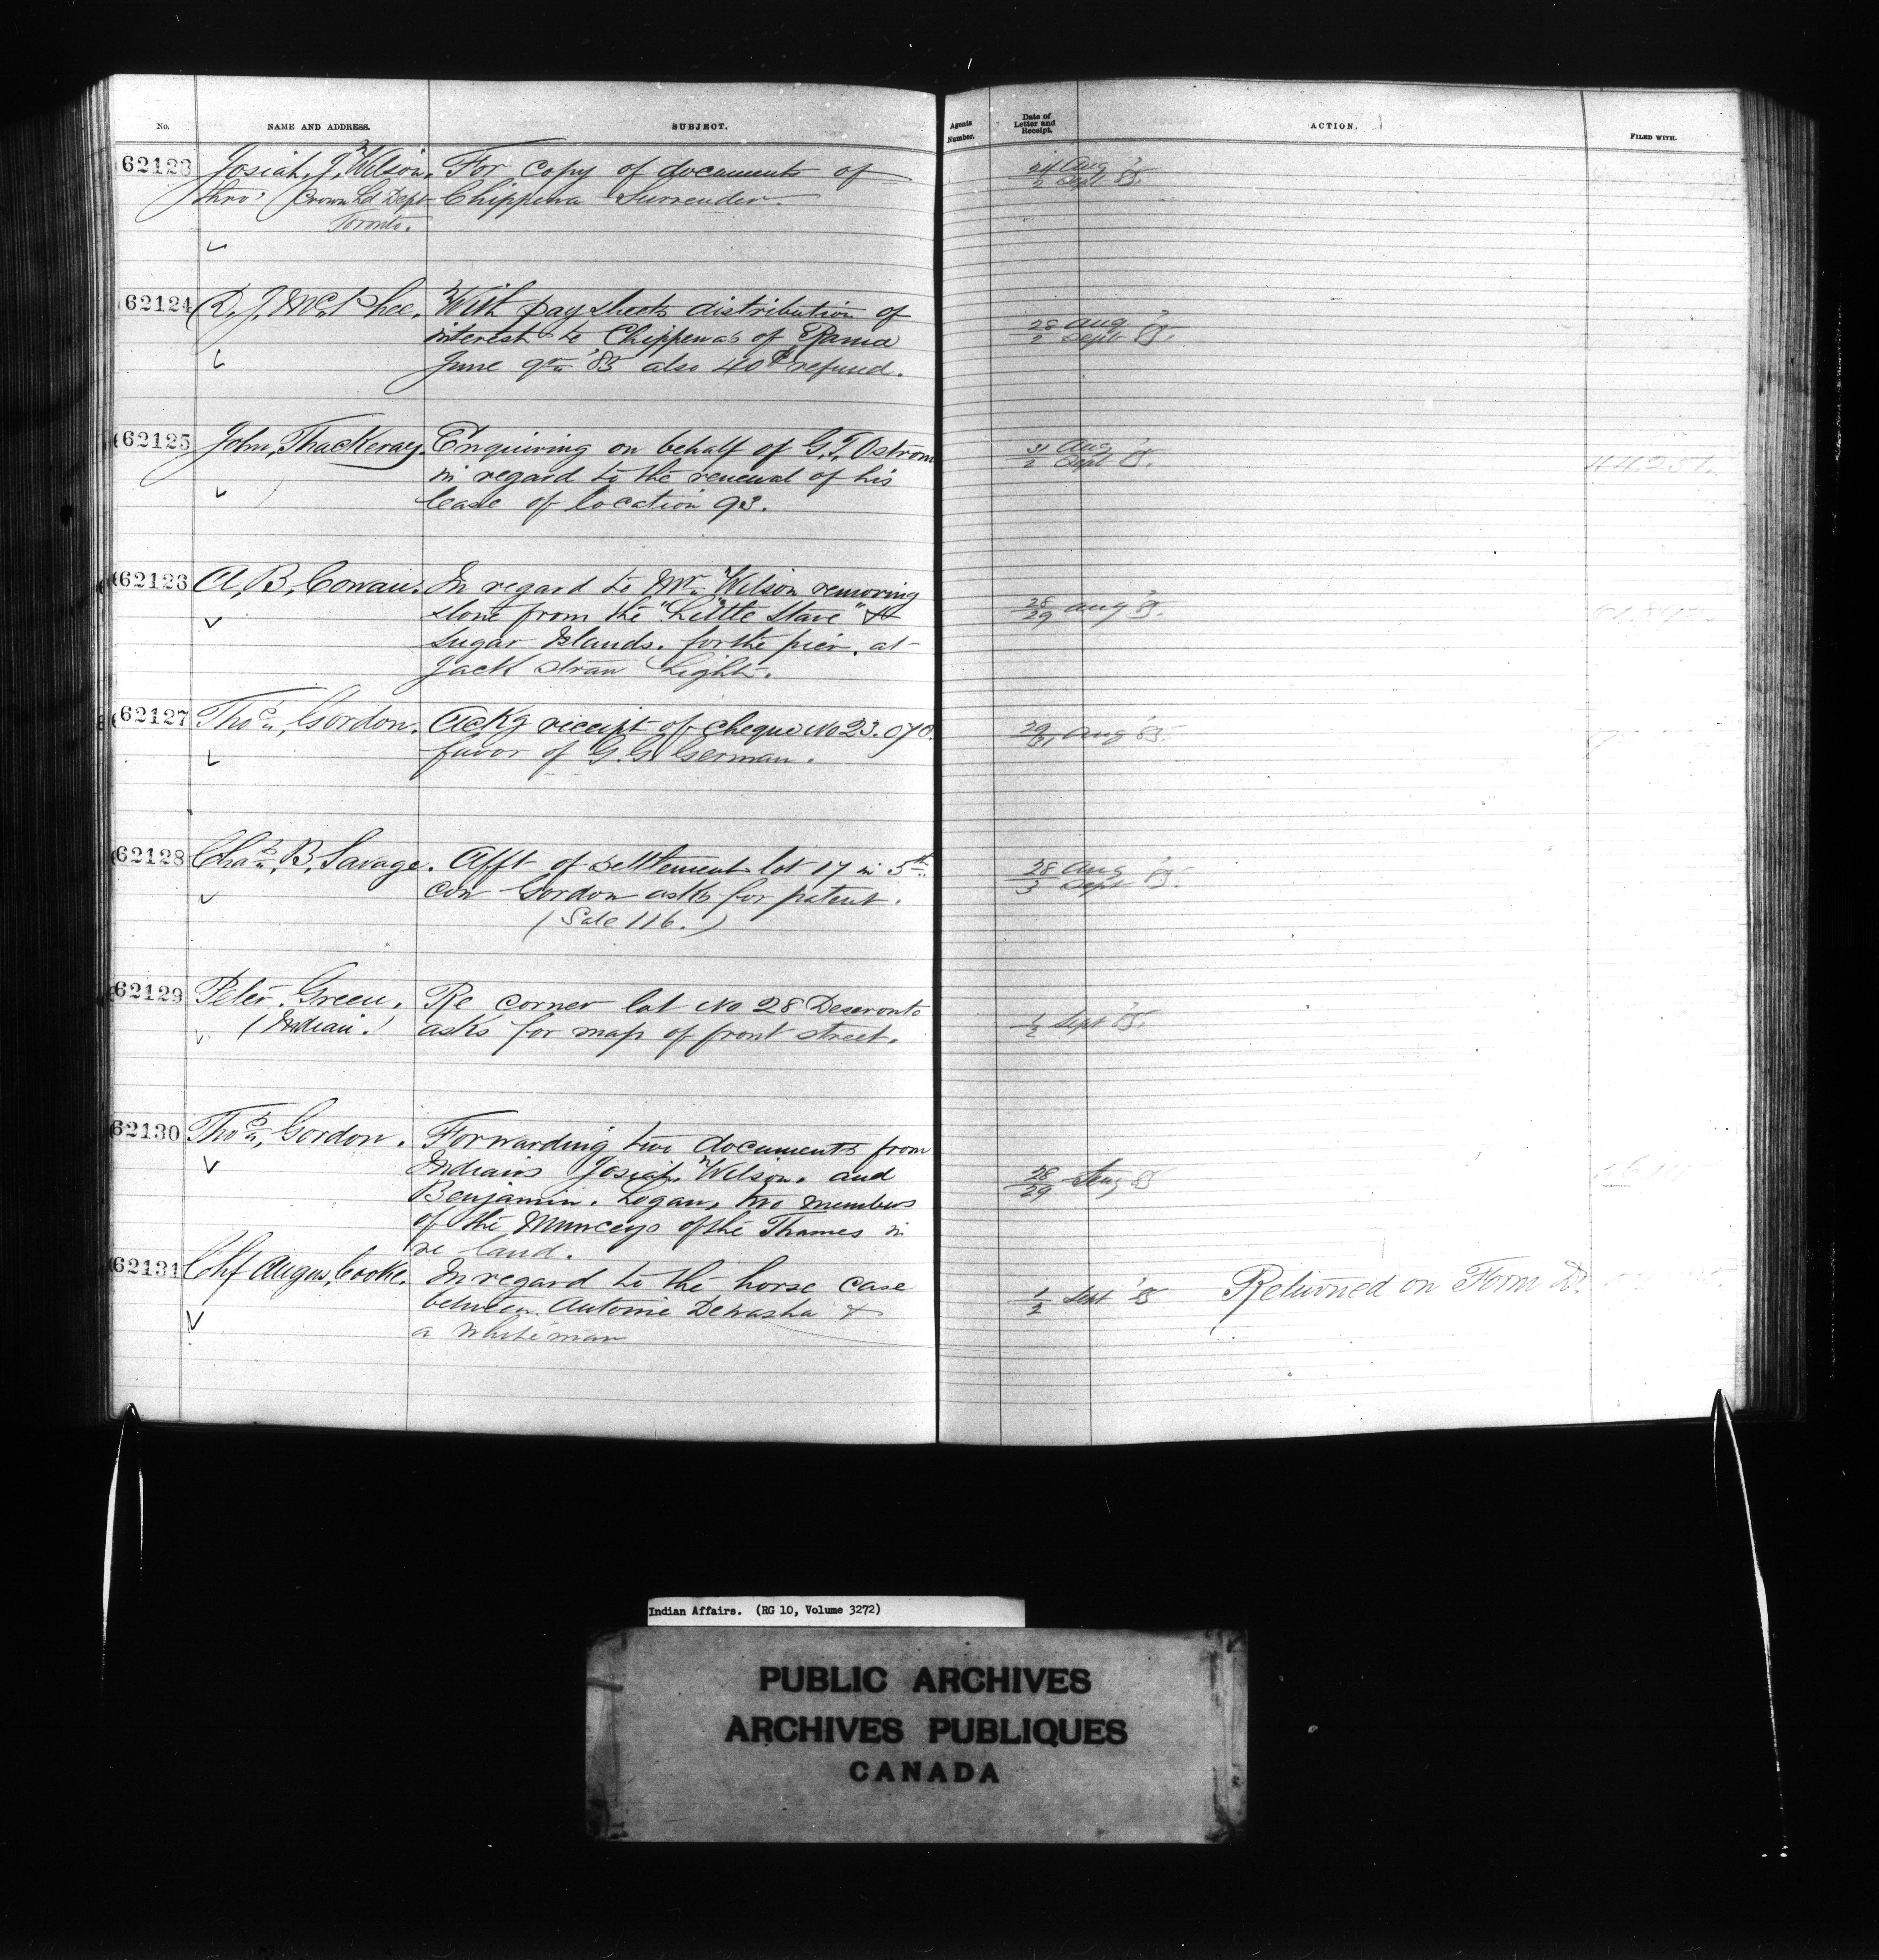 No. NAME AND ADDRESS. SUBJECT. Agents Number. Date of Letter and Receipt. ACTION. FILED WITH.
62123 Josiah J. Wilson. For copy of documents of 24 Aug / 2 Sept '85.
thro' Crown Ld Dept Chippewa Surrender.
Toronto.
62124 D. J. McPhee. With pay sheets distribution of 28 Aug / 2 Sept '85.
interest to Chippewas of Rama
June qr '85 also 40¢ refund.
62125 John Thackeray. Enquiring on behalf of G. T. Ostrom 31 Aug / 2 Sept '85. 44,251.
in regard to the renewal of his
lease of location 93.
62126 A. B. Cowan. In regard to Mr. Wilson removing 28/29 Aug '85.
stone from the "Little Stave" &
Sugar Islands. for the pier. at
Jack Straw Light.
62127 Thos. Gordon. Ackg receipt of cheque No 23.070. 29/31 Aug '85.
favor of G. G. German.
62128 Chas. B. Savage. Afft of settlement lot 17 in 5th 28 Aug / 3 Sept '85.
con Gordon asks for patent.
(Sale 116.)
62129 Peter Green. Re corner lot No 28 Deseronto 1/2 Sept '85.
(Indian.) asks for map of front street.
62130 Thos. Gordon. Forwarding two documents from 28/29 Aug 85
Indians Josiah Wilson. and
Benjamin. Logan, two members
of the Munceys of the Thames in
re land.
62131 Chf Angus Cooke. In regard to the horse case 1/2 Sept '85 Returned on Form D.
between Antoine Dewasha &
a whiteman
Indian Affairs. (RG 10, Volume 3272)
PUBLIC ARCHIVES
ARCHIVES PUBLIQUES
CANADA